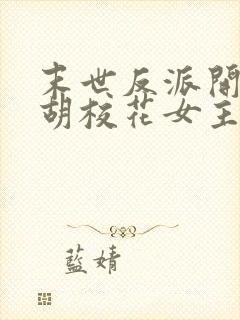 末世反派開
胡校花女主
藍婧